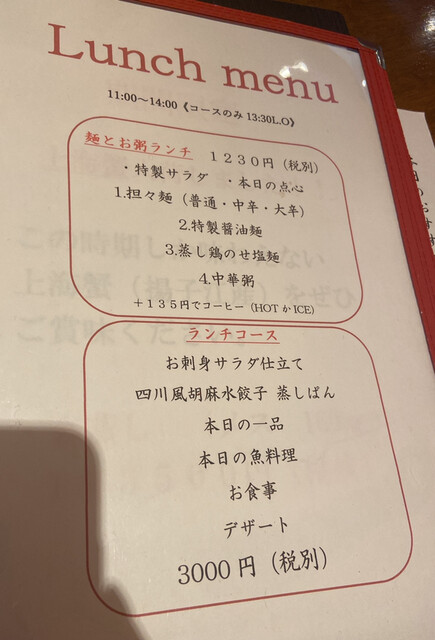 Lunch menu
11:00～14:00《コースのみ 13:30L.O》
麺とお粥ランチ　１２３０円（税別）
・特製サラダ　・本日の点心
1.担々麺（普通・中辛・大辛）
2.特製醤油麺
3.蒸し鶏のせ塩麺
4.中華粥
＋１３５円でコーヒー（HOT か ICE）
ランチコース
お刺身サラダ仕立て
四川風胡麻水餃子 蒸しぱん
本日の一品
本日の魚料理
お食事
デザート
3000 円（税別）